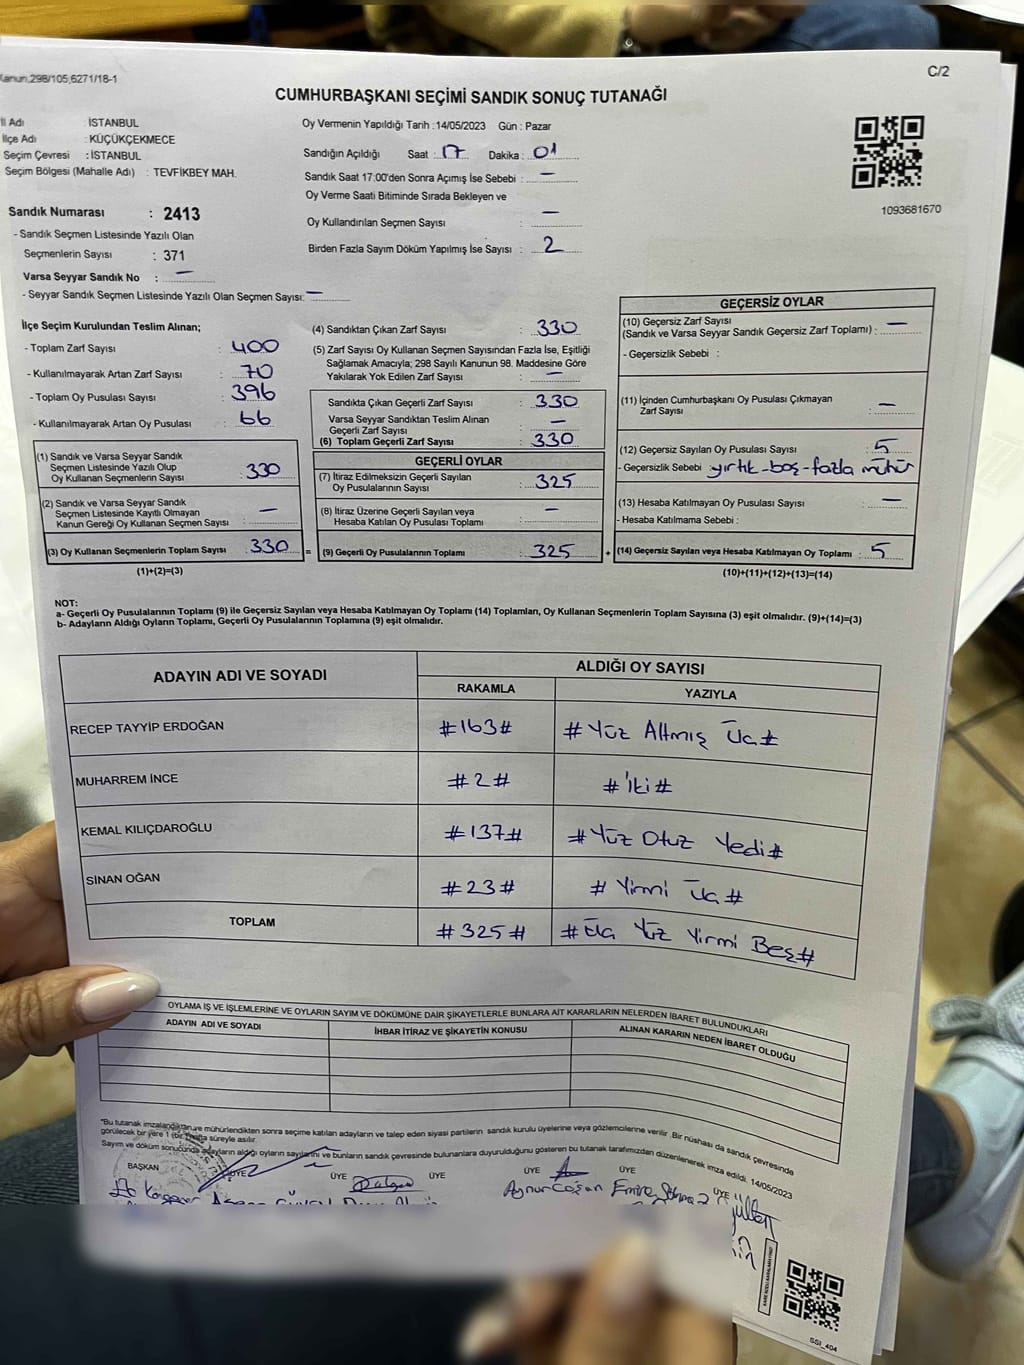 Kanun,298/105,6271/18-1
C/2
CUMHURBAŞKANI SEÇİMİ SANDIK SONUÇ TUTANAĞI
İl Adı : İSTANBUL
İlçe Adı : KÜÇÜKÇEKMECE
Seçim Çevresi : İSTANBUL
Seçim Bölgesi (Mahalle Adı) : TEVFİKBEY MAH.
Sandık Numarası : 2413
- Sandık Seçmen Listesinde Yazılı Olan
Seçmenlerin Sayısı : 371
Varsa Seyyar Sandık No : —
- Seyyar Sandık Seçmen Listesinde Yazılı Olan Seçmen Sayısı: —
Oy Vermenin Yapıldığı Tarih : 14/05/2023 Gün : Pazar
Sandığın Açıldığı Saat : 17 Dakika : 01
Sandık Saat 17:00'den Sonra Açımış İse Sebebi : —
Oy Verme Saati Bitiminde Sırada Bekleyen ve
Oy Kullandırılan Seçmen Sayısı : —
Birden Fazla Sayım Döküm Yapılmış İse Sayısı : 2
1093681670
İlçe Seçim Kurulundan Teslim Alınan;
- Toplam Zarf Sayısı : 400
- Kullanılmayarak Artan Zarf Sayısı : 70
- Toplam Oy Pusulası Sayısı : 396
- Kullanılmayarak Artan Oy Pusulası : 66
(1) Sandık ve Varsa Seyyar Sandık
Seçmen Listesinde Yazılı Olup
Oy Kullanan Seçmenlerin Sayısı : 330
(2) Sandık ve Varsa Seyyar Sandık
Seçmen Listesinde Kayıtlı Olmayan
Kanun Gereği Oy Kullanan Seçmen Sayısı : —
(3) Oy Kullanan Seçmenlerin Toplam Sayısı : 330 =
(1)+(2)=(3)
(4) Sandıktan Çıkan Zarf Sayısı : 330
(5) Zarf Sayısı Oy Kullanan Seçmen Sayısından Fazla İse, Eşitliği
Sağlamak Amacıyla; 298 Sayılı Kanunun 98. Maddesine Göre
Yakılarak Yok Edilen Zarf Sayısı : —
Sandıkta Çıkan Geçerli Zarf Sayısı : 330
Varsa Seyyar Sandıktan Teslim Alınan
Geçerli Zarf Sayısı : —
(6) Toplam Geçerli Zarf Sayısı : 330
GEÇERLİ OYLAR
(7) İtiraz Edilmeksizin Geçerli Sayılan
Oy Pusulalarının Sayısı : 325
(8) İtiraz Üzerine Geçerli Sayılan veya
Hesaba Katılan Oy Pusulası Toplamı : —
(9) Geçerli Oy Pusulalarının Toplamı : 325 +
GEÇERSİZ OYLAR
(10) Geçersiz Zarf Sayısı
(Sandık ve Varsa Seyyar Sandık Geçersiz Zarf Toplamı) : —
- Geçersizlik Sebebi :
(11) İçinden Cumhurbaşkanı Oy Pusulası Çıkmayan
Zarf Sayısı : —
(12) Geçersiz Sayılan Oy Pusulası Sayısı : 5
- Geçersizlik Sebebi : yırtık-boş-fazla mühür
(13) Hesaba Katılmayan Oy Pusulası Sayısı : —
- Hesaba Katılmama Sebebi :
(14) Geçersiz Sayılan veya Hesaba Katılmayan Oy Toplamı : 5
(10)+(11)+(12)+(13)=(14)
NOT:
a- Geçerli Oy Pusulalarının Toplamı (9) ile Geçersiz Sayılan veya Hesaba Katılmayan Oy Toplamı (14) Toplamları, Oy Kullanan Seçmenlerin Toplam Sayısına (3) eşit olmalıdır. (9)+(14)=(3)
b- Adayların Aldığı Oyların Toplamı, Geçerli Oy Pusulalarının Toplamına (9) eşit olmalıdır.
ADAYIN ADI VE SOYADI
ALDIĞI OY SAYISI
RAKAMLA YAZIYLA
RECEP TAYYİP ERDOĞAN #163# #Yüz Altmış Üç#
MUHARREM İNCE #2# #İki#
KEMAL KILIÇDAROĞLU #137# #Yüz Otuz Yedi#
SİNAN OĞAN #23# #Yirmi Üç#
TOPLAM #325# #Üç Yüz Yirmi Beş#
OYLAMA İŞ VE İŞLEMLERİNE VE OYLARIN SAYIM VE DÖKÜMÜNE DAİR ŞİKAYETLERLE BUNLARA AİT KARARLARIN NELERDEN İBARET BULUNDUKLARI
ADAYIN ADI VE SOYADI İHBAR İTİRAZ VE ŞİKAYETİN KONUSU ALINAN KARARIN NEDEN İBARET OLDUĞU
"Bu tutanak imzalandıktan ve mühürlendikten sonra seçime katılan adayların ve talep eden siyasi partilerin sandık kurulu üyelerine veya gözlemcilerine verilir. Bir nüshası da sandık çevresinde
görülecek bir yere 1 (bir) hafta süreyle asılır.
Sayım ve döküm sonucunda adayların aldığı oyların sayılarını ve bunların sandık çevresinde bulunanlara duyurulduğunu gösteren bu tutanak tarafımızdan düzenlenerek imza edildi. 14/05/2023
BAŞKAN ÜYE ÜYE ÜYE ÜYE ÜYE ÜYE
Aynur Coşan
SSI_404